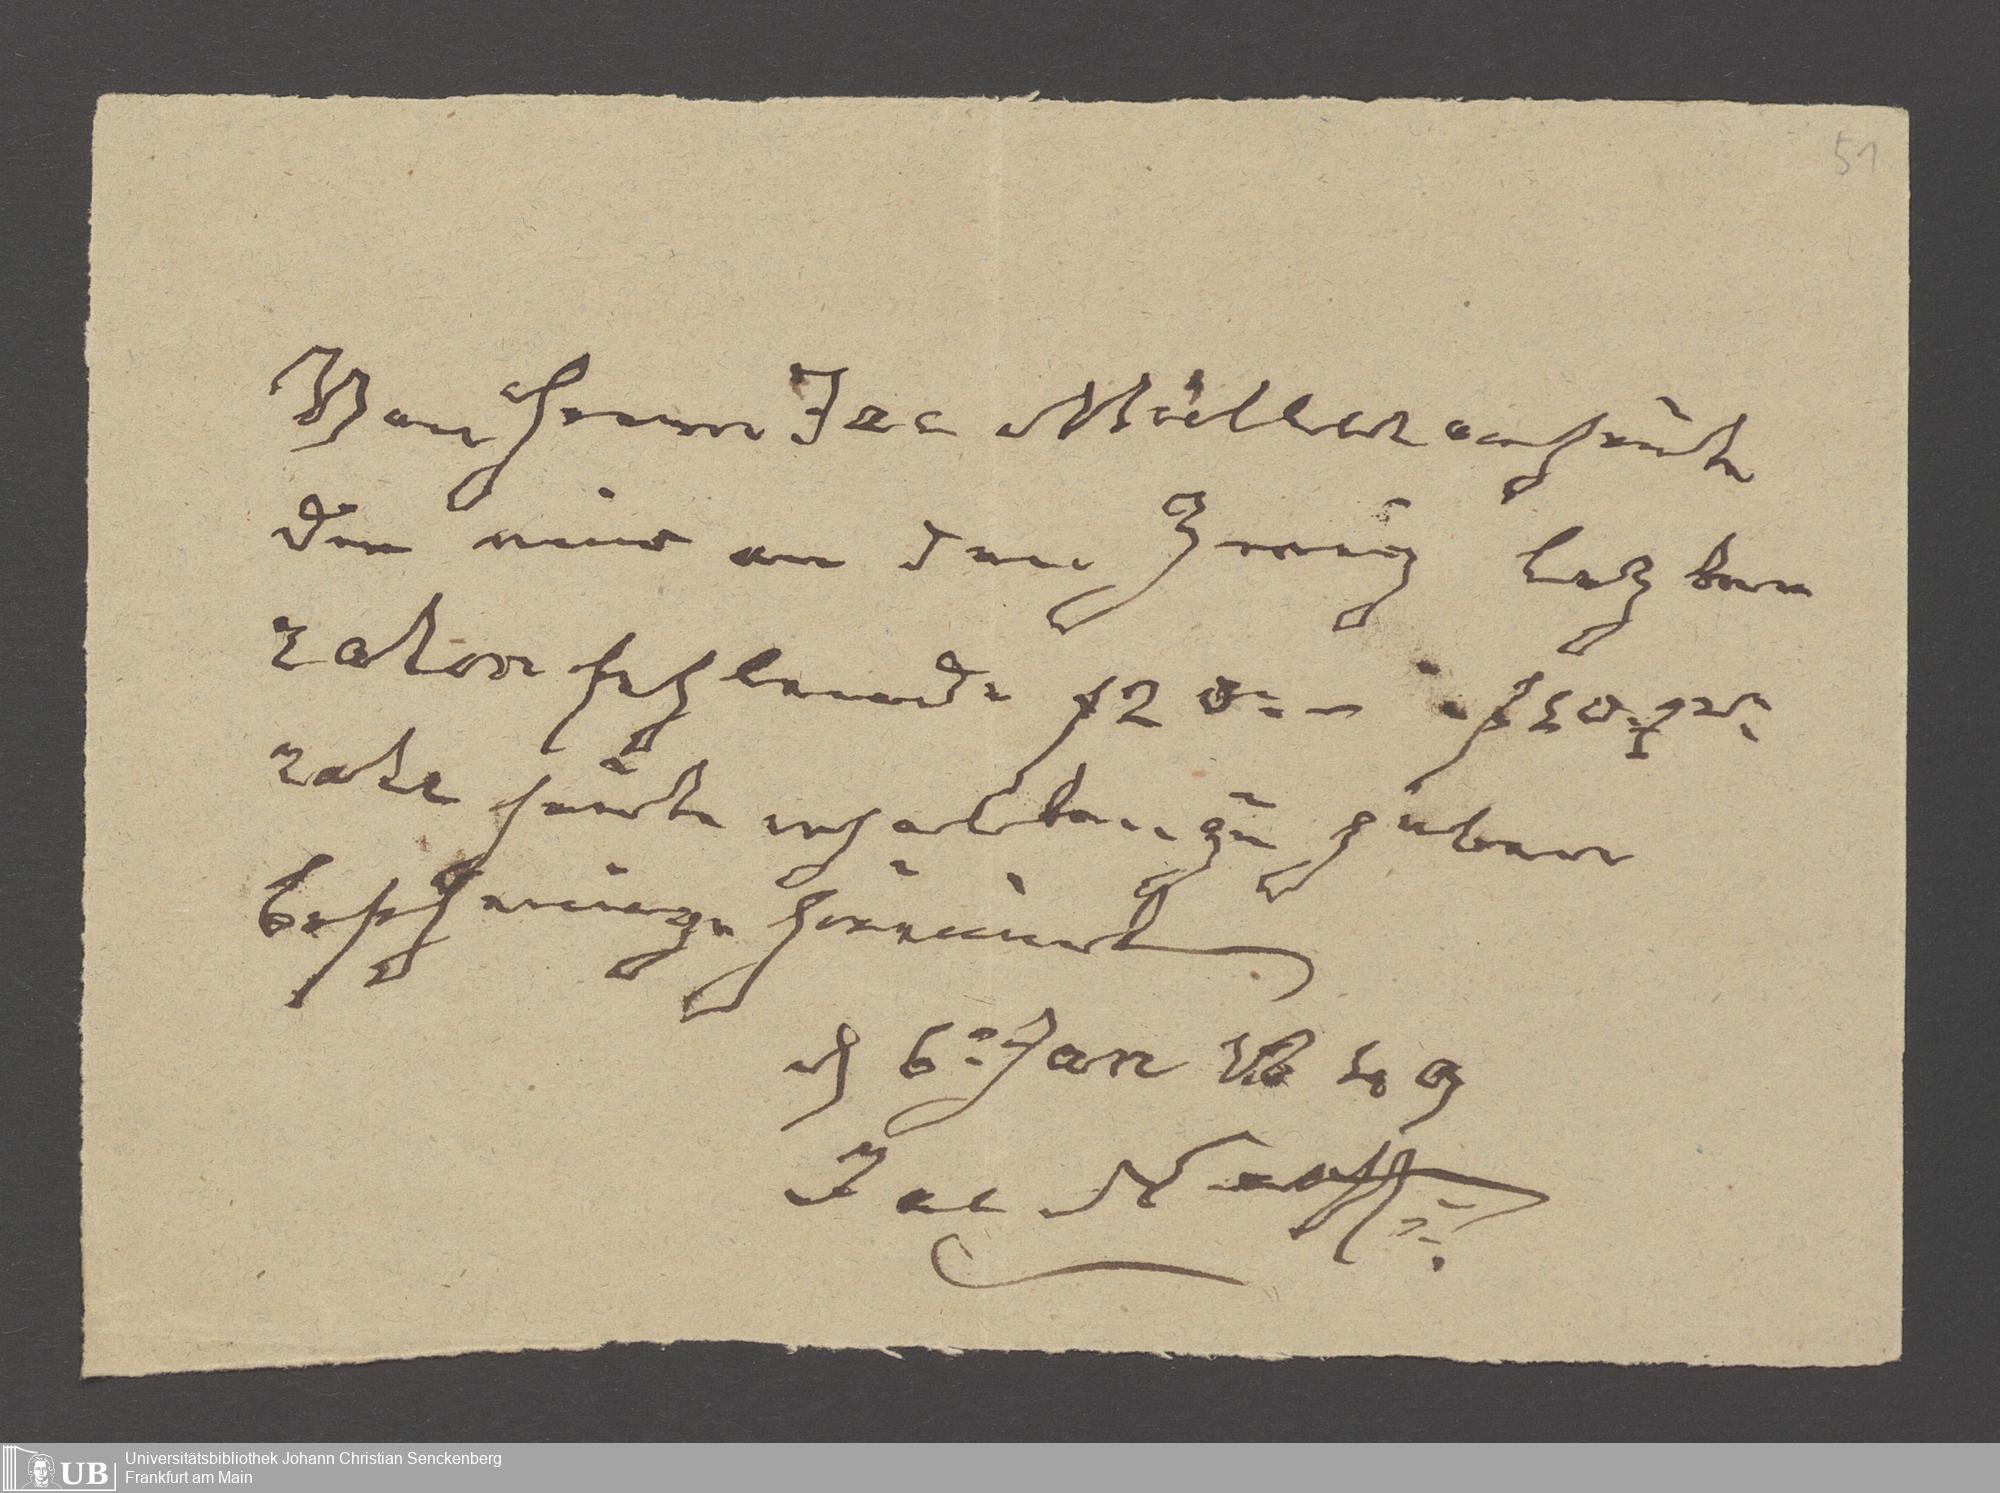 51
Von Herrn Jac Müller
die mir an den Zweÿ letzten
raten fehlende f 20.–
rate heüte erhalten zu haben
bescheinige hiermit
d 6: Jan 1849
Jac
Universitätsbibliothek Johann Christian Senckenberg
Frankfurt am Main
UB